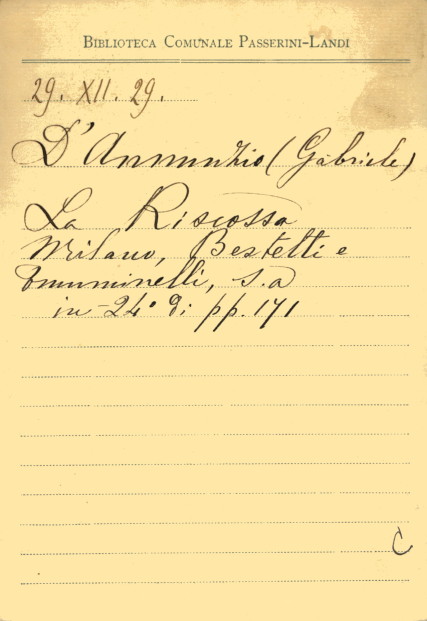 BIBLIOTECA COMUNALE PASSERINI-LANDI
29. XII. 29.
D'Annunzio (Gabriele)
La Riscossa
Milano, Bestetti e
Tumminelli, s.a
in-24° di pp. 171
C